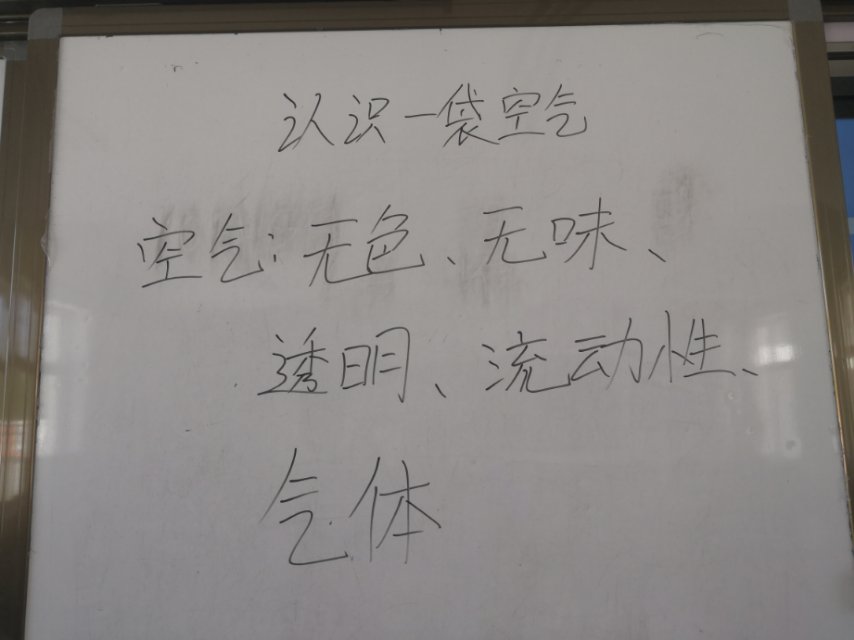 认识一袋空气
空气:无色、无味、
透明、流动性、
气体